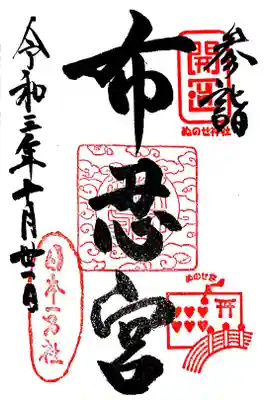 参詣
開運
ぬのせ神社
布忍宮
ぬのせ宮
令和三年十月廿一日
日本一宮社